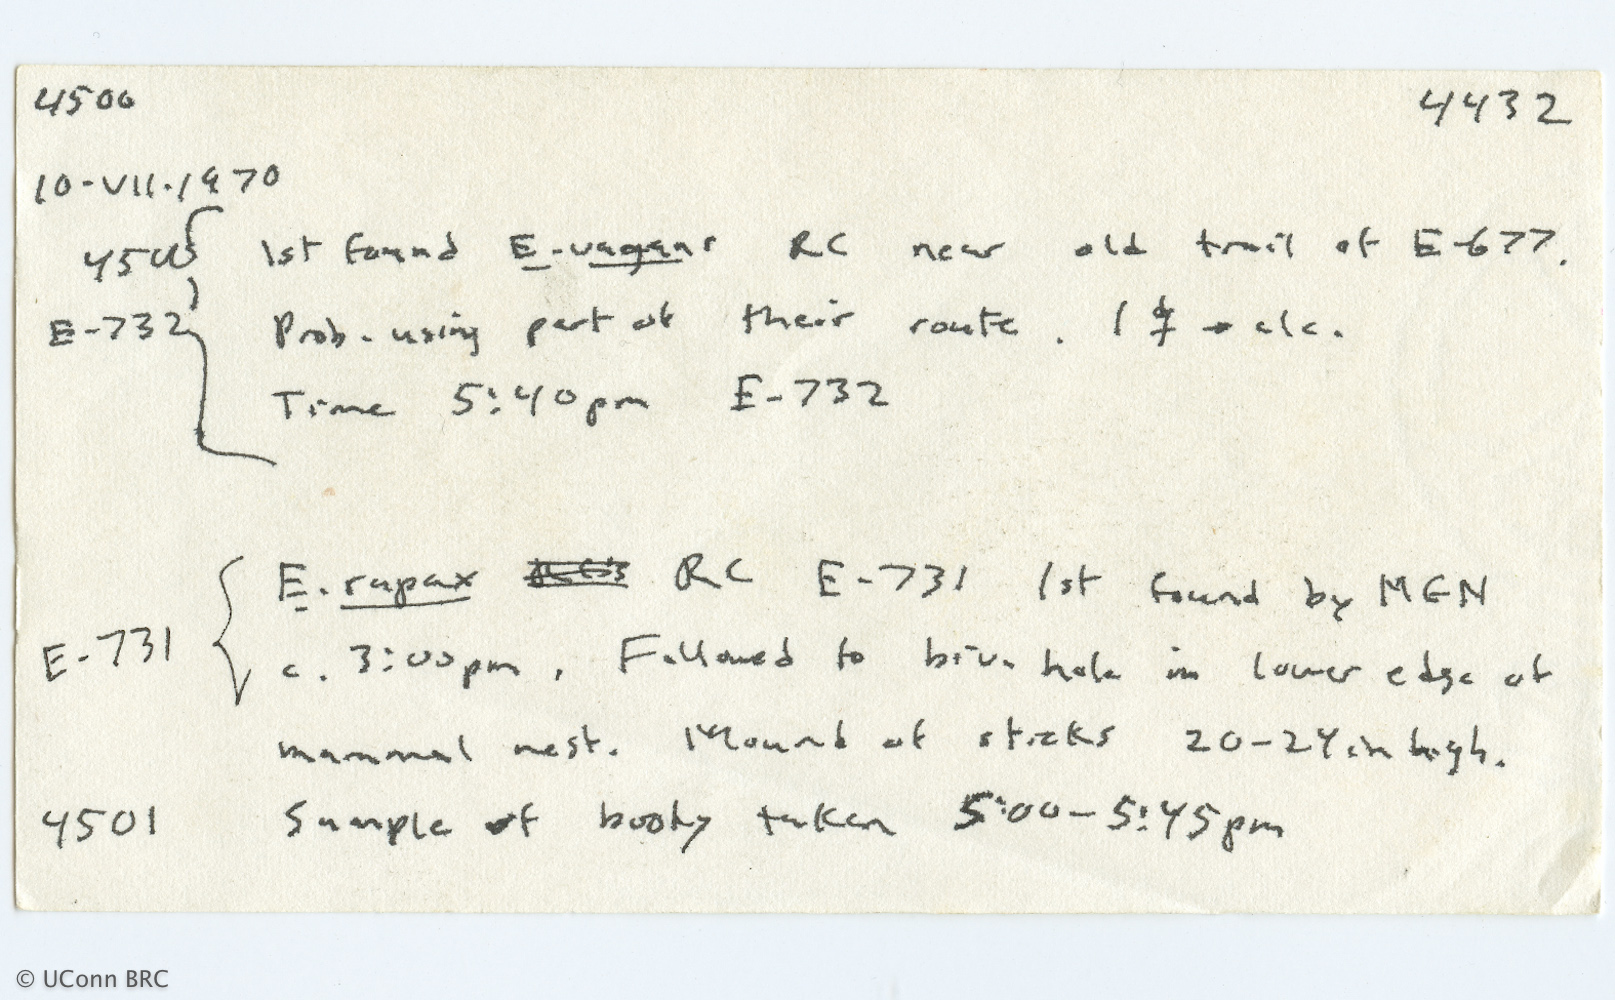 4500 4432
10-VII-1970
4500 1st found E. vagans RC near old trail of E-677.
E-732 Prob. using part of their route. 1 → alc.
Time 5:40pm E-732
E. rapax RC E-731 1st found by MEN
E-731 c. 3:00pm, Followed to biv. hole in lower edge of
mammal nest. Mound of sticks 20-24 in high.
4501 Sample of booty taken 5:00-5:45pm
© UConn BRC